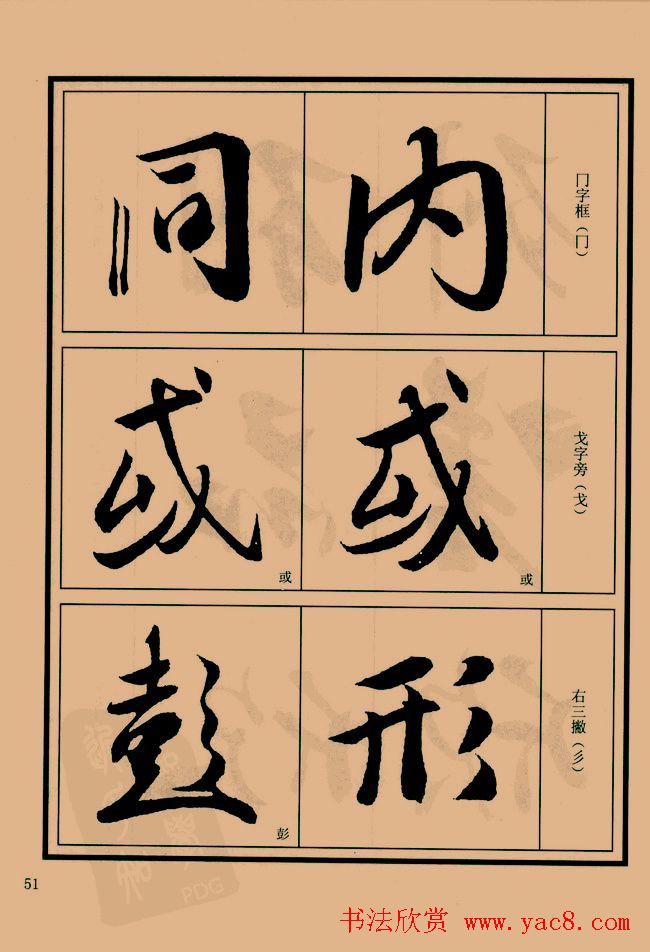 冂字框（冂）
内
同
戈字旁（戈）
或
或
或
或
右三撇（彡）
形
彭
彭
51
PDG
书法欣赏 www.yac8.com